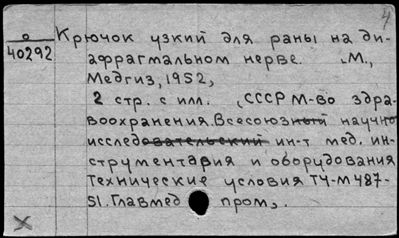 4
о
40292
Крючок узкий для раны на ди-
афрагмальном нерве. М.,
Медгиз, 1952,
2 стр. с илл. (СССР М-во здра-
воохранения. Всесоюзный научно
исследовательский ин-т мед. ин-
струментария и оборудования
Технические условия ТУ-М 487-
51. Главмед пром).